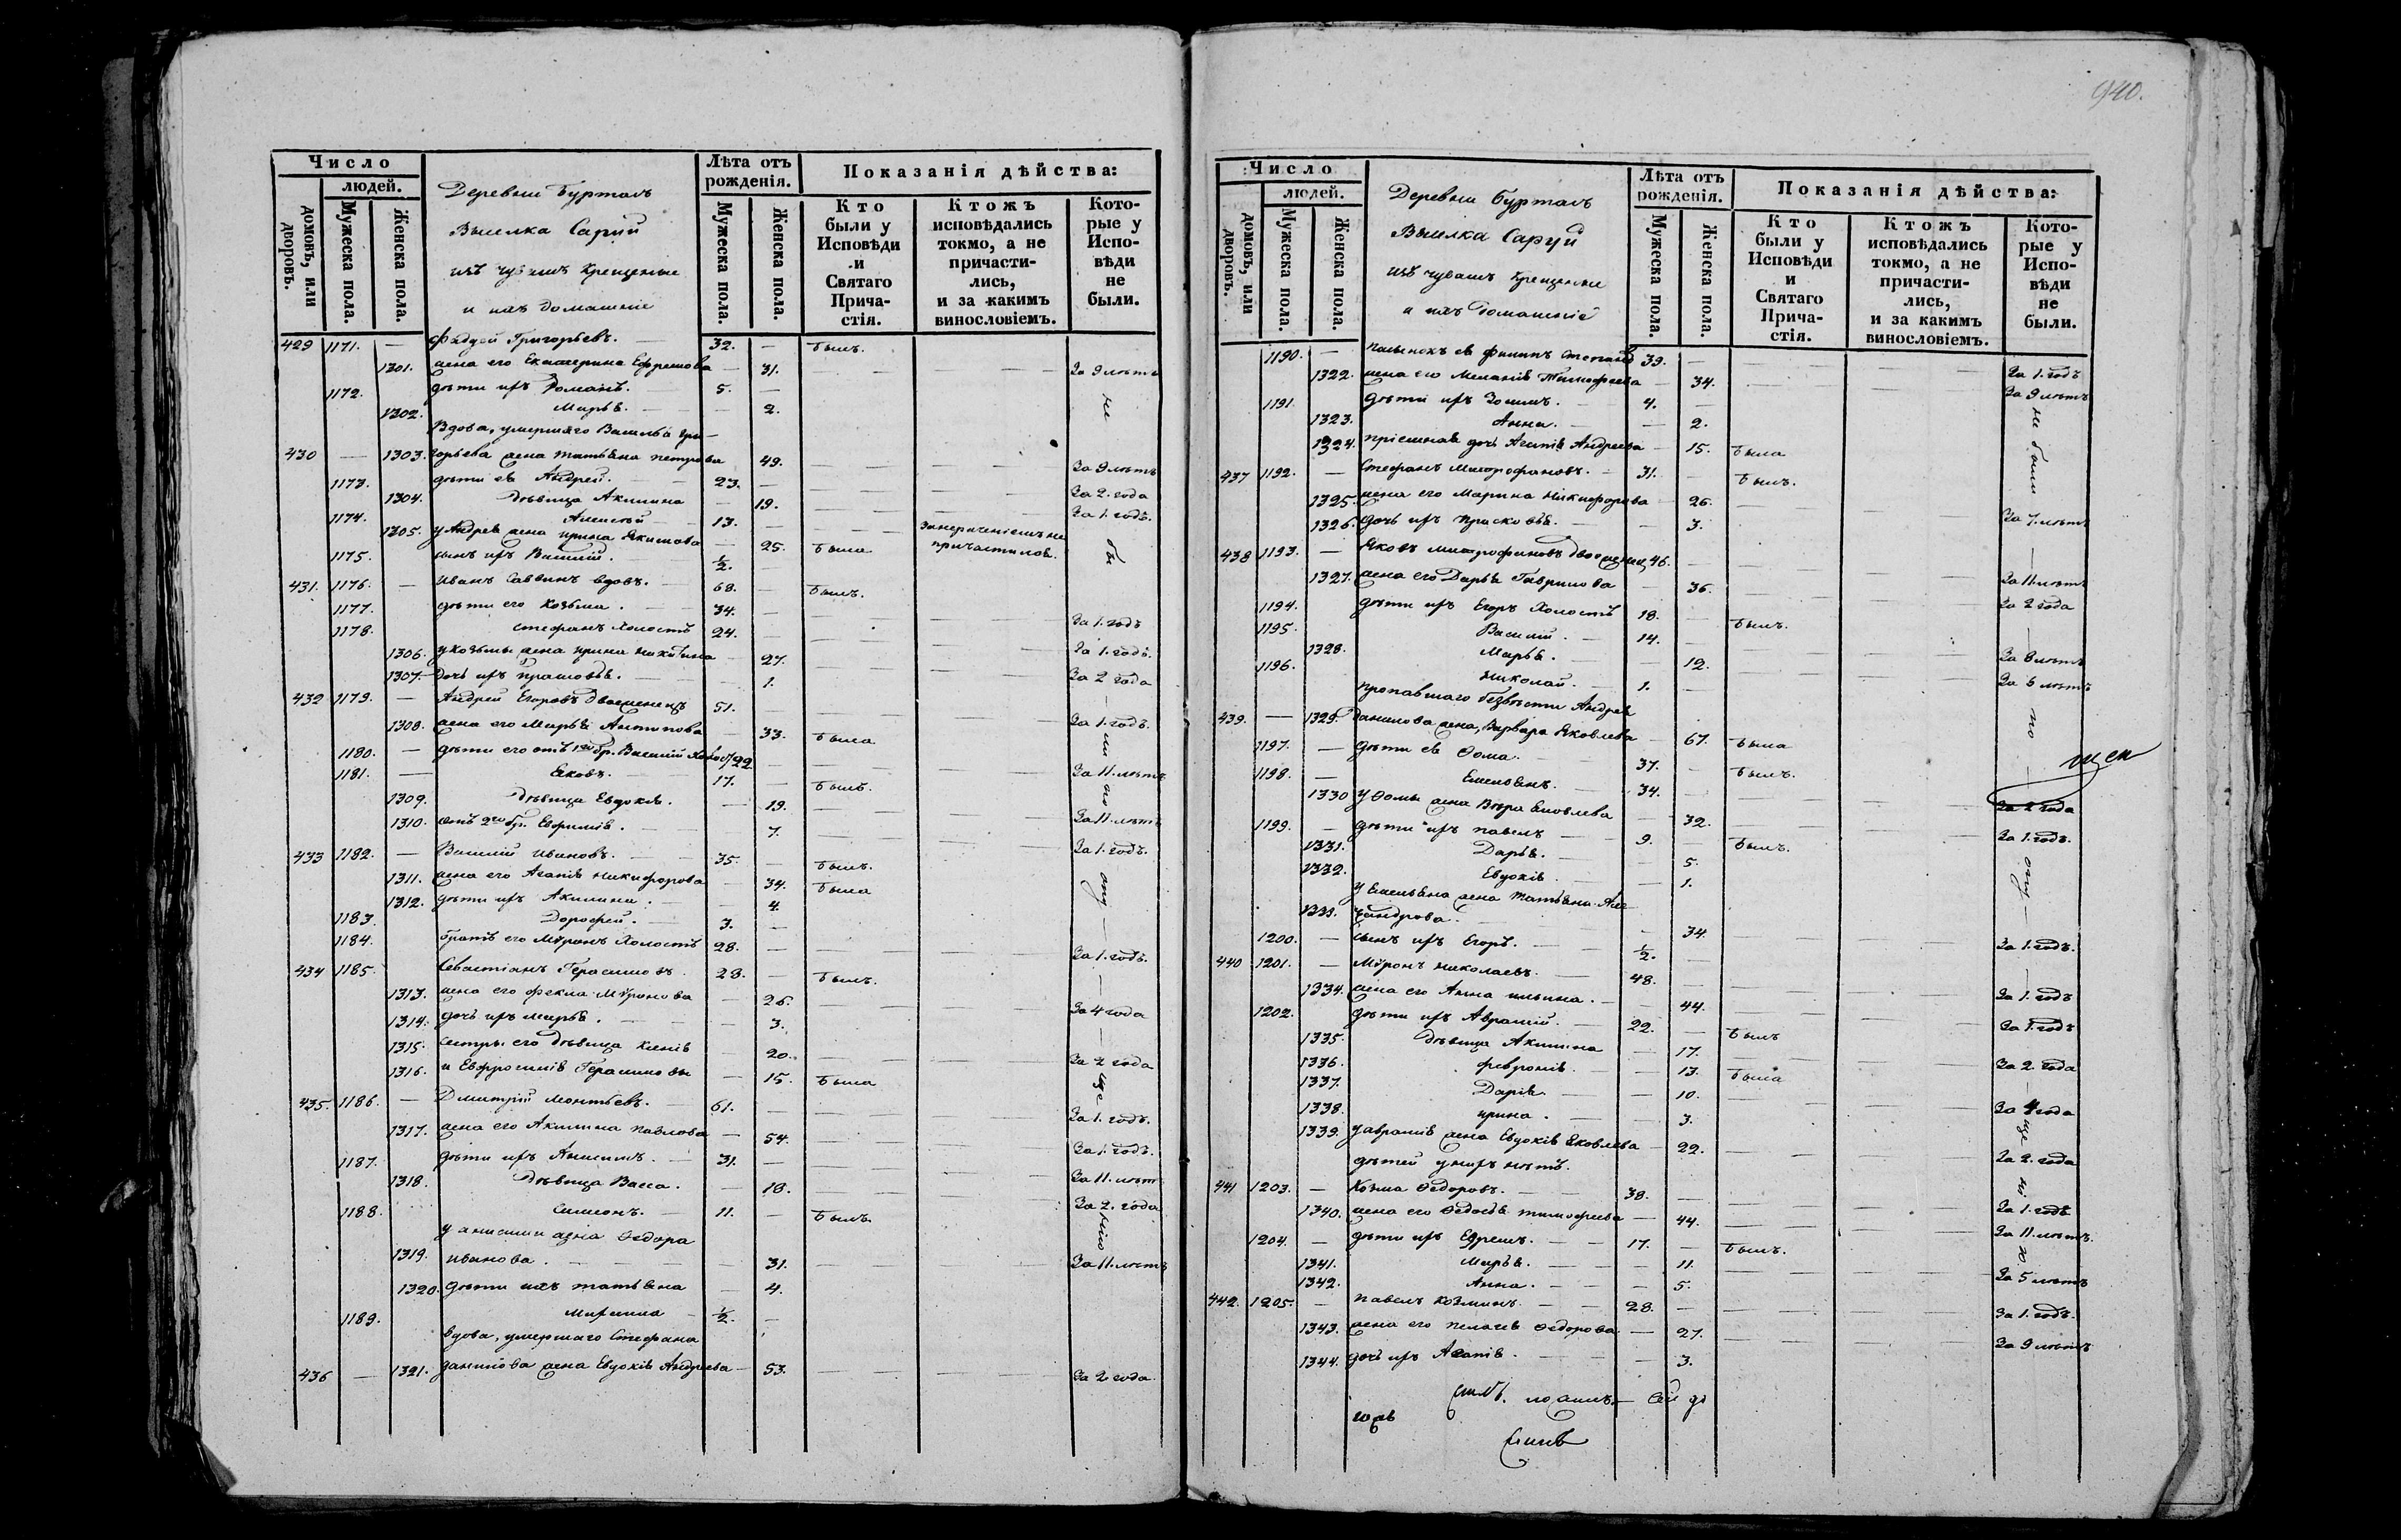 Число
людей.
домовъ, или дворовъ.
Мужеска пола.
Женска пола.
Деревни Буртасъ
Выселка Саруй
изъ чувашъ крещеные
и ихъ домашніе
Лѣта отъ рожденія.
Мужеска пола.
Женска пола.
Показанія дѣйства:
Кто были у Исповѣди и Святаго Причастія.
Ктожъ исповѣдались токмо, а не причастились, и за какимъ винословіемъ.
Которые у Исповѣди не были.
429 1171. — Фадѣй Григорьевъ. 32. — былъ.
1301. жена его Екатерина Ефремова — 31. За 9 лѣтъ
1172. дѣти ихъ Романъ. 5. —
1302. Марья. — 2.
Вдова, умершаго Василья Гри-
430 — 1303. горьева жена Татьяна Петрова 49. За 9 лѣтъ
1173. дѣти ея Андрей. 23. — За 2. года
1304. дѣвица Акилина — 19. За 1. годъ.
1174. Алексѣй 13. —
1305. у Андрея жена Ирина Якимова — 25. была
1175. сынъ ихъ Василій. ½. —
431. 1176. — Иванъ Саввинъ вдовъ. 68. — былъ.
1177. дѣти его Козьма. 34. — За 1. годъ
1178. Стефанъ холостъ 24. — За 1. годъ.
1306. у Козьмы жена Ирина Никитина 27. За 2 года
1307. дочь ихъ Прасковья. 1.
432 1179. — Андрей Егоровъ двоеженецъ 51. За 1. годъ.
1308. жена его Марья Антипова — 33. была
1180. — дѣти его отъ 1го бр. Василій холостъ 22 За 11. лѣтъ
1181. — Яковъ. 17. — былъ.
1309. дѣвица Евдокія. — 19. За 11. лѣтъ
1310. отъ 2го бр. Евфимія. 7. За 1. годъ.
433 1182. — Василій Ивановъ. 35. — былъ.
1311. жена его Агапія Никифорова — 34. была
1312. дѣти ихъ Акилина. — 4.
1183. Дорофей. 3. —
1184. братъ его Мѵронъ холостъ 28. — За 1. годъ.
434 1185. Севастіанъ Герасимовъ. 28. — былъ.
1313. жена его Фекла Мѵронова — 26. За 4 года
1314. дочь ихъ Марья. — 3.
1315. сестры его дѣвица Ксенія 20. За 2 года
1316. и Евфросинія Герасимовы — 15. была
435. 1186. — Дмитрій Леонтьевъ. 61. За 1. годъ.
1317. жена его Акилина Павлова — 54. За 1. годъ.
1187. дѣти ихъ Анисимъ. 31. — За 11. лѣтъ
1318. дѣвица Васса. — 18. За 2. года
1188. Симеонъ. 11. — былъ.
у Анисима жена Ѳедора
1319. Иванова. 31. За 11. лѣтъ
1320. дѣти ихъ Татьяна — 4.
1189. ½. —
вдова, умершаго Стефана
436 — 1321. Данилова жена Евдокія Андреева — 53. За 2 года.
940.
Число
людей.
домовъ, или дворовъ.
Мужеска пола.
Женска пола.
Деревни Буртасъ
Выселка Саруй
изъ чувашъ крещеные
и ихъ домашніе
Лѣта отъ рожденія.
Мужеска пола.
Женска пола.
Показанія дѣйства:
Кто были у Исповѣди и Святаго Причастія.
Ктожъ исповѣдались токмо, а не причастились, и за какимъ винословіемъ.
Которые у Исповѣди не были.
1190. — пасынокъ ея Филипъ Степановъ 39. — За 1. годъ
1322. жена его Меланія Тимофеева — 34. За 9 лѣтъ
1191. дѣти ихъ Зосимъ. 4. —
1323. Анна. — 2.
1324. пріемная дочь Агапія Андреева — 15. была
437 1192. — Стефанъ Митрофановъ. 31. — былъ.
1325. жена его Марина Никифорова — 26. За 7. лѣтъ
1326. дочь ихъ Прасковья. — 3.
438 1193. — Яковъ Митрофановъ двоеженец, 46. За 11. лѣтъ
1327. жена его Дарья Гаврилова 36. За 2 года
1194. дѣти ихъ Егоръ холостъ 18. былъ.
1195. Василій. 14. — За 8 лѣтъ
1328. Марья. — 12. За 6 лѣтъ
1196. Николай. 1.
пропавшаго безвѣсти Андрея
439. — 1329. Данилова жена, Варвара Яковлева — 67. была
1197. — дѣти ея Ѳома. 37. — былъ.
1198. — Емельянъ. 34. За 2 года
1330 у Ѳомы жена Вѣра Яковлева — 32. За 1. годъ.
1199. — дѣти ихъ Павелъ 9. — былъ.
1331. Дарья. — 5.
1332. Евдокія. — 1.
у Емельяна жена Татьяна Але-
1333. ксандрова. — 34. За 1. годъ.
1200. — сынъ ихъ Егоръ. ½. —
440 1201. — Мѵронъ Николаевъ. 48. За 1. годъ
1334. жена его Анна Ильина. 44. За 1. годъ
1202. дѣти ихъ Авраамій. 22. — былъ
1335. дѣвица Акилина — 17. За 2. года
1336. Февронія. — 13. была
1337. Дарія. — 10. За 4 года
1338. Ирина. — 3.
1339. у Авраамія жена Евдокія Яковлева — 22. За 2. года
дѣтей у нихъ нѣтъ.
441 1203. — Козма Ѳедоровъ. 38. — За 1. годъ
1340. жена его Ѳедосья Тимофеева 44. За 11. лѣтъ.
1204. — дѣти ихъ Ефремъ. 17. — былъ.
1341. Марья. — 11. За 5 лѣтъ
1342. Анна. — 5.
442. 1205. — Павелъ Козминъ. 28. — За 1. годъ.
1343. жена его Пелагея Ѳедорова — 27. За 9 лѣтъ
1344. дочь ихъ Агапія. — 3.